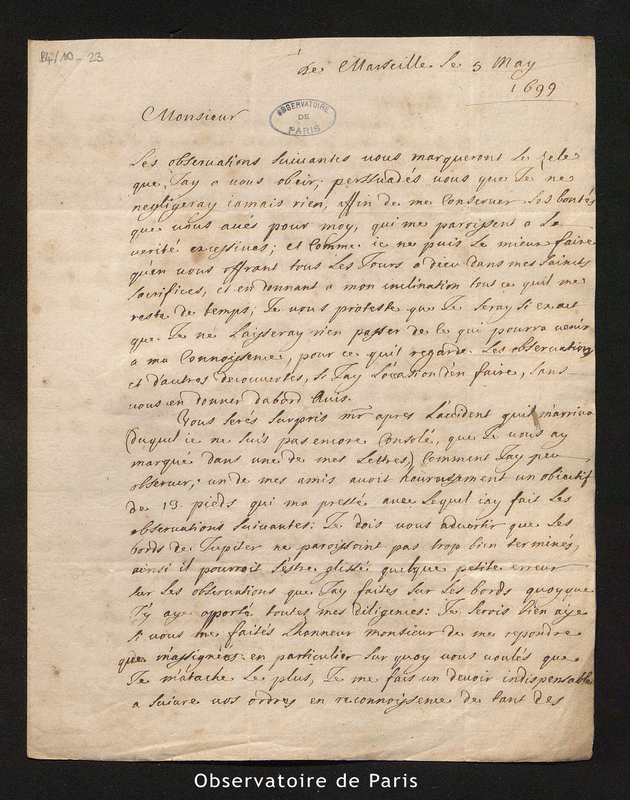 B4/10-23
De Marseille le 5 May
1699
Monsieur
OBSERVATOIRE
DE
PARIS
Les observations suivantes vous marqueront Le zele
que Jay a vous obeir; persuadés vous que Je ne
negligeray iamais rien, affin de me Conserver Les bontés
que vous avés pour moy, qui me paroissent a La
verité excessives; et Comme ie ne puis Le mieux faire
qu'en vous offrant tous Les Jours a dieu dans mes saints
sacrifices, et en donnant a mon inclination tout ce quil me
reste de temps; Je vous proteste que Je seray si exact
que Je ne Laisseray rien passer de Ce qui pourra venir
a ma Connoissence, pour ce quil regarde Les observations
et d'autres decouvertes, si Jay L'ocasion d'en faire, sans
vous en donner dabord Avis.
Vous serés surpris mr apres L'accident quil m'arriva
(duquel ie ne suis pas encore Consolé, que Je vous ay
marqué dans une de mes Lettres) Comment Jay peu
observer; un de mes amis avoit hureusement un obiectif
de 13 pieds qui ma presté avec Lequel iay fait Les
observations suivantes: Je dois vous advertir que Les
bords de Jupiter ne paroissoint pas trop bien terminés,
ainsi il pourroit s'estre glissé quelque petite erreur
sur Les observations que Jay faites sur Les bords quoyque
J'y aye apporté toutes mes diligences: Je serois bien aise
si vous me faites L'honneur monsieur de me repondre
que m'assignés en particulier sur quoy vous voulés que
Je m'atache Le plus, Je me fais un devoir indispensable
a suivre vos ordres en reconnoissence de tant des
Observatoire de Paris